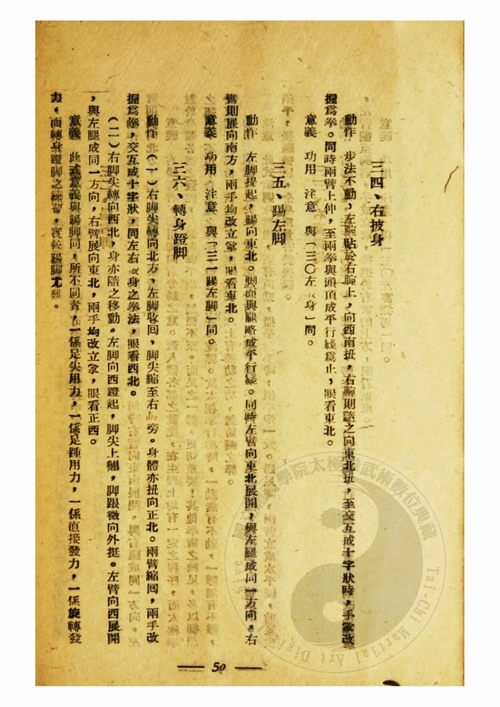 三四、右披身
動作　步法不動，左腕貼於右腕上，向西南扭，右腕則隨之向東北扭，至交互成十字狀時，手掌改
握爲拳。同時兩臂上伸，至兩拳與頭頂成平行綫爲止，眼看東北。
意義　功用　注意　與「三〇左披身」同。
三五、踢左脚
動作　左脚提起，踢向東北。脚面與腿略成平行綫。同時左臂向東北展開，與左腿成同一方向，右
臂則展向南方，兩手均改立掌，眼看東北。
意義　功用　注意　與「三一踢左脚」同。
三六、轉身蹬脚
動作　（一）右脚尖轉向北方，左脚收回，脚尖縮至右　旁。身體亦扭向正北。兩臂縮回，兩手改
握爲拳，交互成十字狀，同左右披身之拳法，眼看西北。
（二）右脚尖轉向西北，身亦隨之移動。左脚向西蹬起，脚尖上翹，脚跟微向外挺。左臂向西展開
，與左腿成同一方向，右臂展向東北，兩手均改立掌，眼看正西。
意義　此式意義與踢脚同，所不同者，一係足尖用力，一係足踵用力，一係直接發力，一係旋轉發
力，而轉身蹬脚之練習，實較踢脚尤難。
50